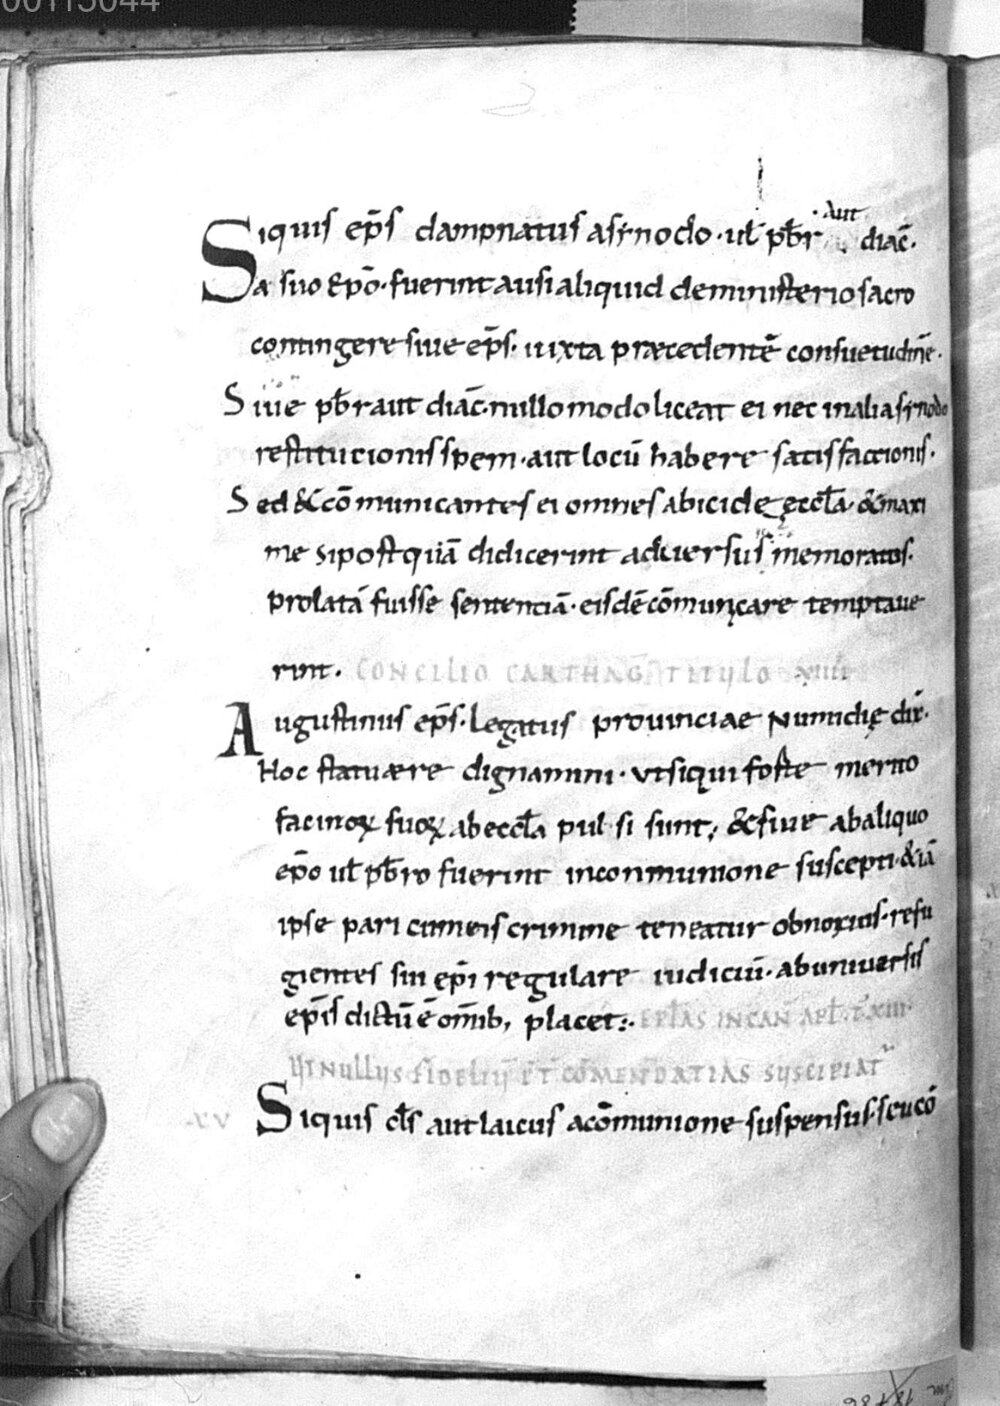 00115044
Siquis ep̄s dampnatus asinodo · ul̄ pb̄r · aut diac̄.
a suo ep̄o · fuerint ausi aliquid deministerio sacro
contingere siue ep̄s · iuxta præcedentē consuetudinē ·
Siue pb̄r aut diac̄ · nullo modo liceat ei nec inalia sinodo
restitucionis spem · aut locū habere satisfaccionis ·
Sed & cōmunicantes ei omnes abicide ęccl̄a · & maxi
me si postquā didicerint aduersus memoratos ·
prolatā fuisse sententiā · eisdē cōmunicare temptaue
rint · CONCILIO CARTHAG̅ TITULO XIIII
Augustinus ep̄s · legatus prouinciae Numidię dix̄ ·
Hoc statuære dignamini · ut siqui foste merito
facinoꝝ suoꝝ ab eccl̄a pulsi sunt; & siue abaliquo
ep̄o ul̄ pb̄ro fuerint inconmunione suscepti · & iā
ipse pari cumeis crimine teneatur obnoxius · refu
gientes sui ep̄i regulare iudiciū · abuniuersis
ep̄is dictū ē omīb; placet: · EPL̄AS IN CAN̄ APL̄ · T̄ XIII ·
UT NULLUS FIDELIŪ P̄T̄ CŌMENDATIAS SUSCIPIAT
XV Siquis cl̄s aut laicus acōmunione suspensus · seu cō